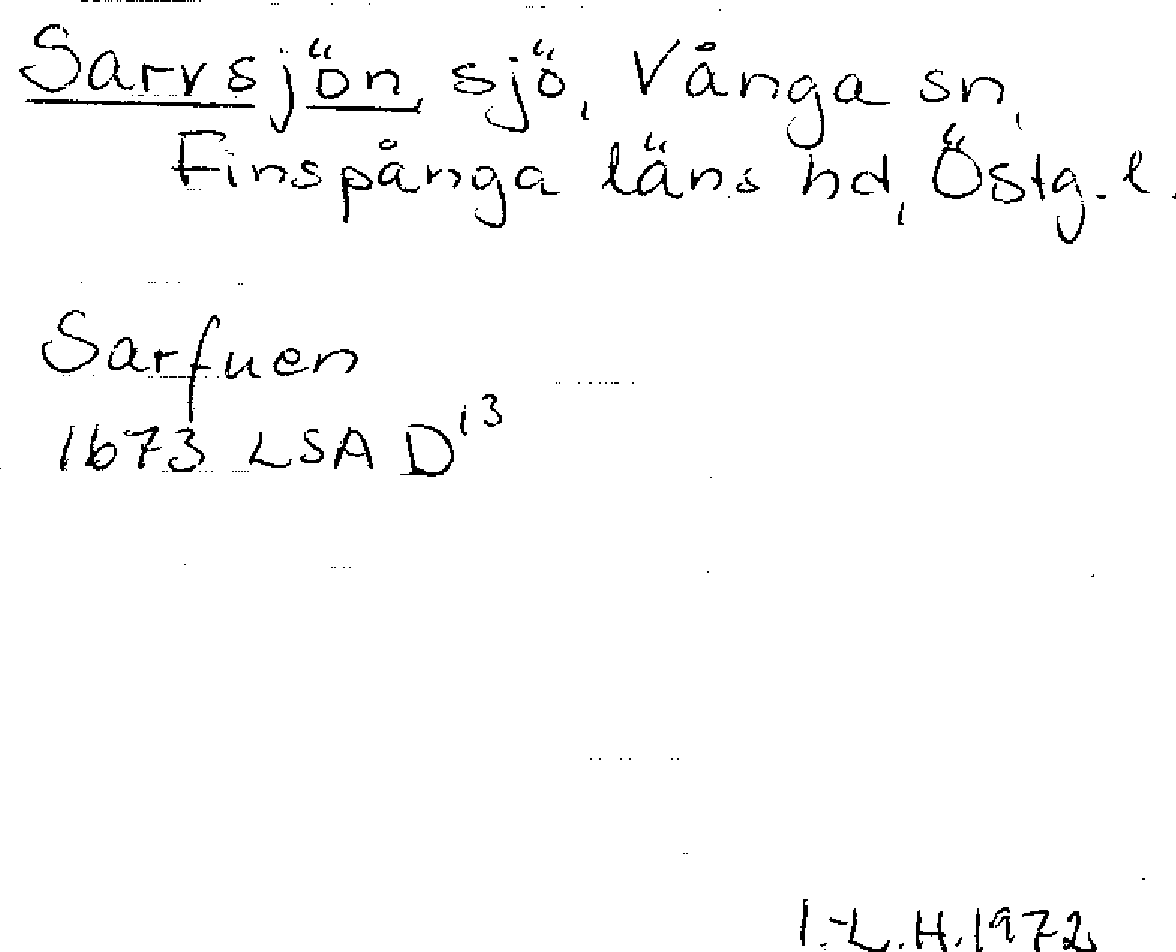 Sarvsjön, sjö, Vånga sn,
Finspånga läns hd, Östg. l.
Sarfuen
1673 LSA D13
I.-L.H. 1972